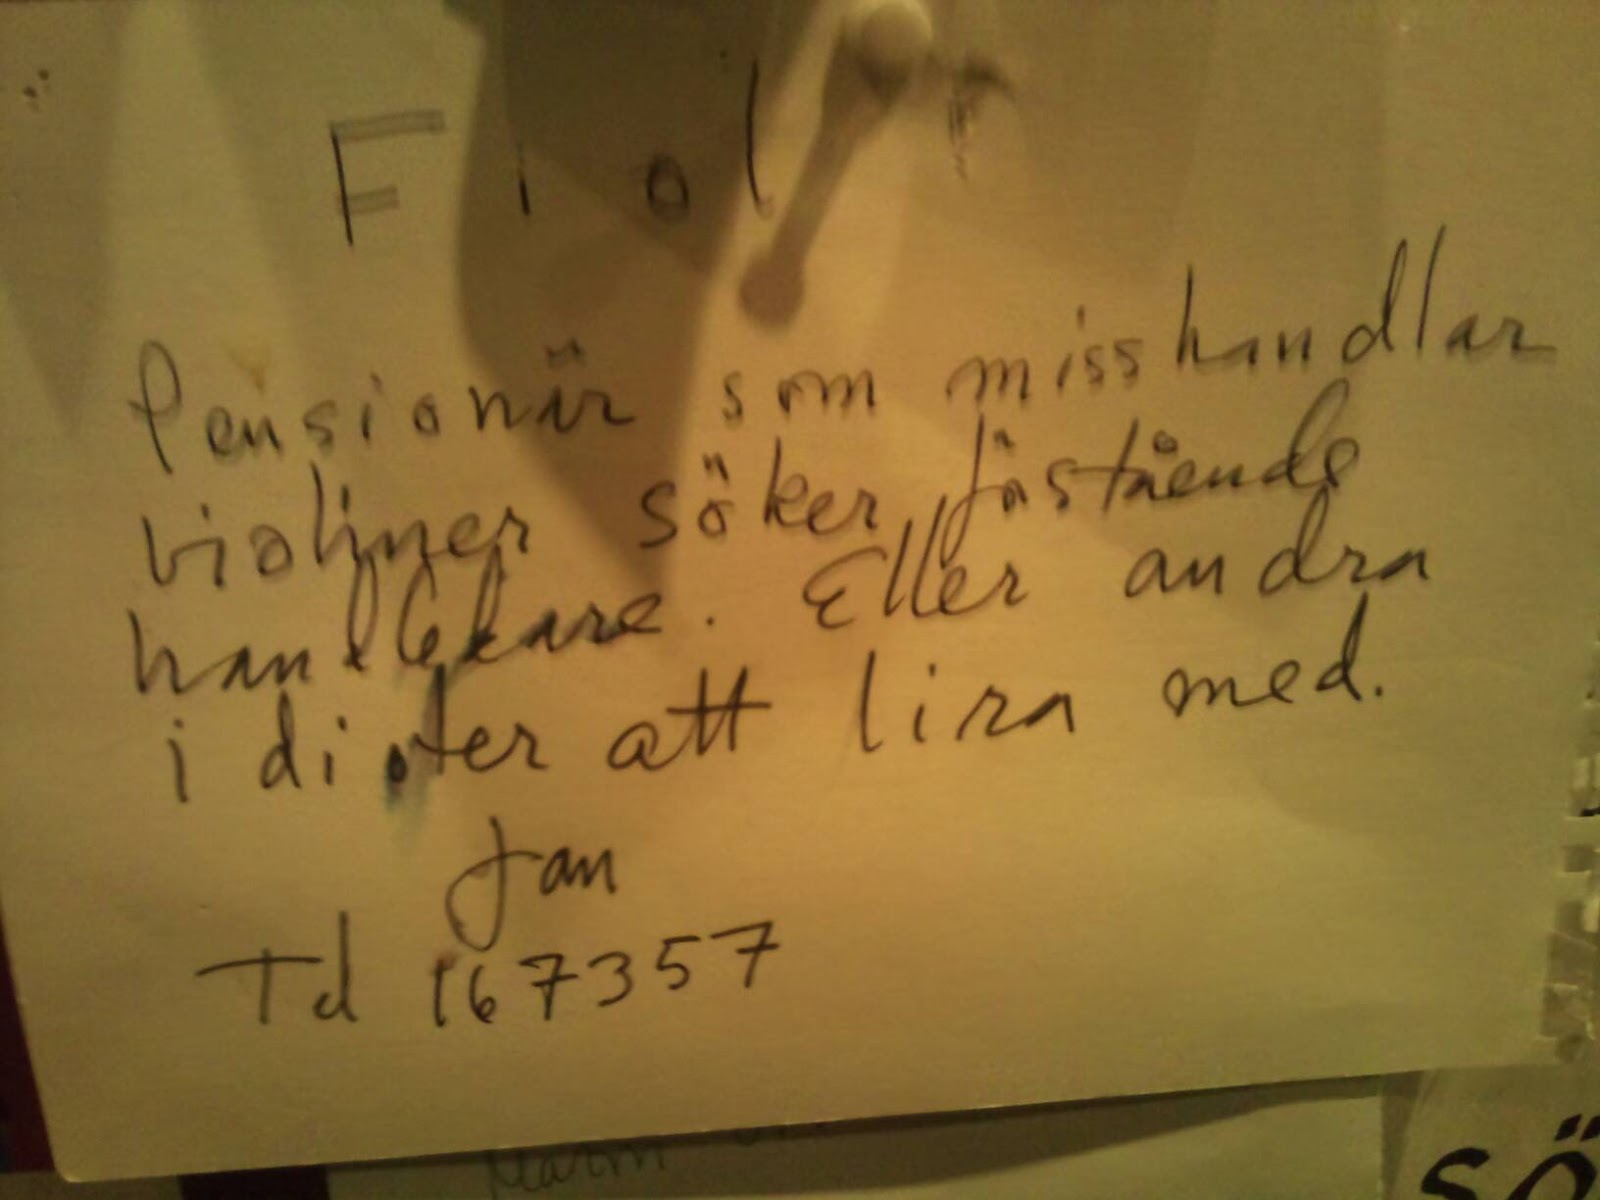 Fiol
Pensionär som misshandlar
violiner söker
handlekare. Eller andra
idioter att lira med.
Jan
Tel 167357
Sö